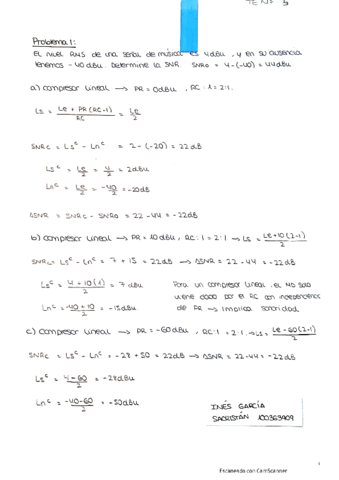 Problema 1:
El nivel RMS de una señal de música es 4dBu, y en su ausencia
tenemos -40dBu. Determine la SNR. SNRo = 4-(-40) = 44dBu
a) compresor lineal → PR = 0dBu, RC:1 = 2:1.
Ls = Le + PR(RC-1) / RC = Le / 2
SNRc = Ls^c - Ln^c = 2-(-20) = 22dB
Ls^c = Le/2 = 4/2 = 2dBu
Ln^c = Le/2 = -40/2 = -20dB
ΔSNR = SNRc - SNRo = 22-44 = -22dB
b) compresor lineal → PR = 10dBu, RC:1 = 2:1 → Ls = Le+10(2-1) / 2
SNRc = Ls^c - Ln^c = 7 + 15 = 22dB → ΔSNR = 22-44 = -22dB
Ls^c = 4+10(1) / 2 = 7 dBu
Para un compresor lineal, el
viene dado por el RC con independencia
Ln^c = -40+10 / 2 = -15dBu
de PR → implica sonoridad
c) compresor lineal → PR = -60dBu, RC:1 = 2:1 → Ls = Le-60(2-1) / 2
SNRc = Ls^c - Ln^c = -28 + 50 = 22dB → ΔSNR = 22-44 = -22dB
Ls^c = 4-60 / 2 = -28dBu
Ln^c = -40-60 / 2 = -50dBu
INÉS GARCÍA
SACRISTÁN 100363909
Escaneado con CamScanner